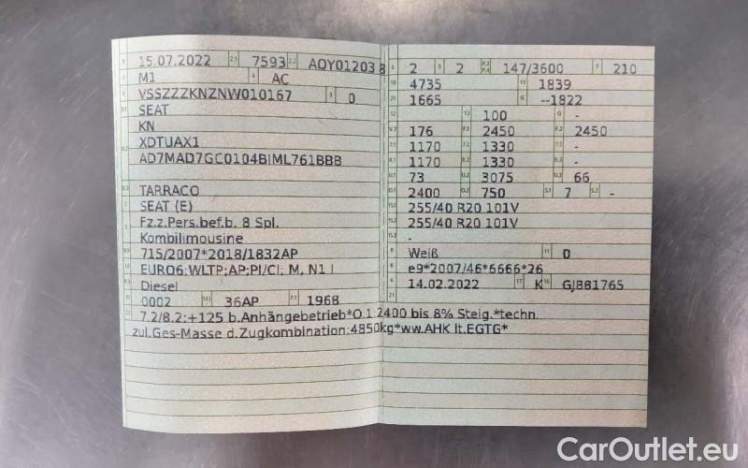 15.07.2022 7593 AQY01203 8
M1 AC
VSSZZZKNZNW010167 0
SEAT
KN
XDTUAX1
AD7MAD7GC0104BIML761BBB
TARRACO
SEAT (E)
Fz.z.Pers.bef.b. 8 Spl.
Kombilimousine
715/2007*2018/1832AP
EURO6;WLTP;AP;PI/CI; M, N1 I
Diesel
0002 36AP 1968
7.2/8.2:+125 b.Anhängebetrieb*O.1:2400 bis 8% Steig.*techn.
zul.Ges-Masse d.Zugkombination:4850kg*ww.AHK lt.EGTG*
2 2 147/3600 210
4735 1839
1665 --1822
100 -
176 2450 2450
1170 1330 -
1170 1330 -
73 3075 66
2400 750 7 -
255/40 R20 101V
255/40 R20 101V
-
Weiß 0
e9*2007/46*6666*26
14.02.2022 K GJ881765
CarOutlet.eu